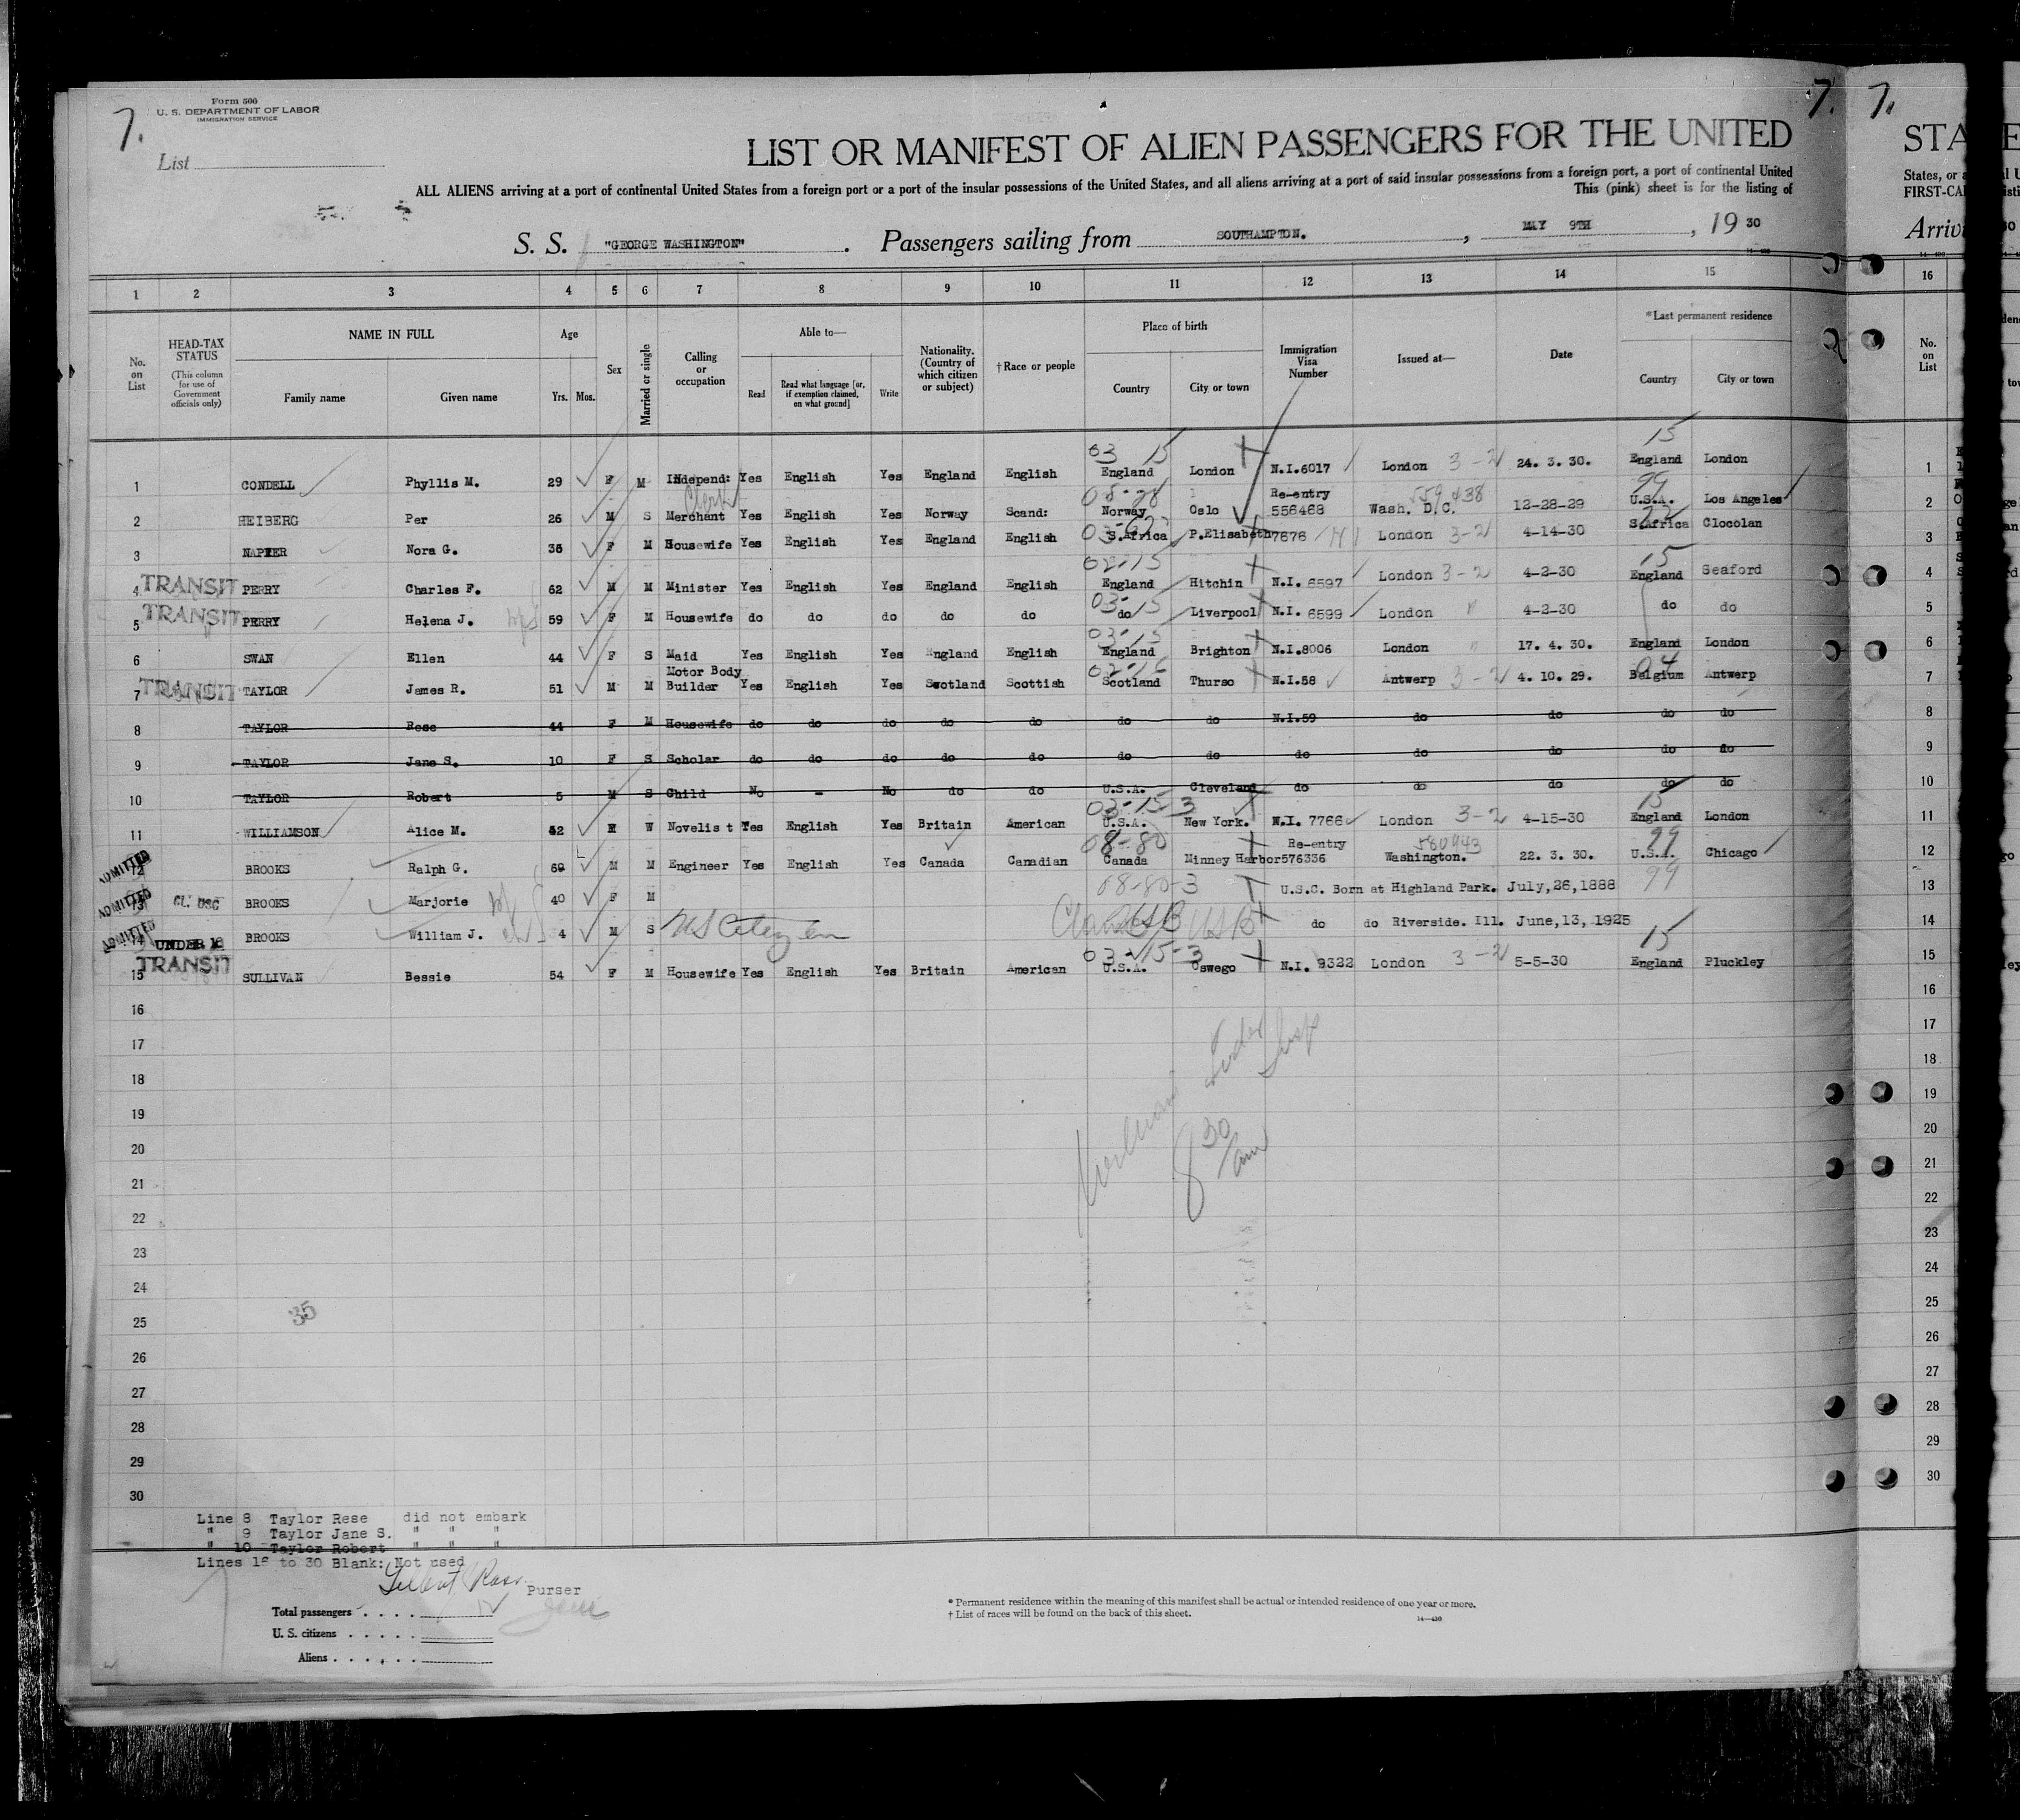 7.
Form 500
U. S. DEPARTMENT OF LABOR
IMMIGRATION SERVICE
List
LIST OR MANIFEST OF ALIEN PASSENGERS FOR THE UNITED
ALL ALIENS arriving at a port of continental United States from a foreign port or a port of the insular possessions of the United States, and all aliens arriving at a port of said insular possessions from a foreign port, a port of continental United
This (pink) sheet is for the listing of
S. S. "GEORGE WASHINGTON". Passengers sailing from SOUTHAMPTON., MAY 9TH, 19 30
1 2 3 4 5 6 7 8 9 10 11 12 13 14 15
No. on List
HEAD-TAX STATUS
(This column for use of Government officials only)
NAME IN FULL
Family name Given name
Age
Yrs. Mos.
Sex
Married or single
Calling or occupation
Able to—
Read
Read what language [or, if exemption claimed, on what ground]
Write
Nationality. (Country of which citizen or subject)
† Race or people
Place of birth
Country City or town
Immigration Visa Number
Issued at—
Date
*Last permanent residence
Country City or town
03 15 15
1 CONDELL Phyllis M. 29 F M Independ: Yes English Yes England English England London N.I.6017 London 3-2 24. 3. 30. England London
Clerk 08-28 Re-entry 559438 99
2 HEIBERG Per 26 M S Merchant Yes English Yes Norway Scand: Norway Oslo 556468 Wash. D.C. 12-28-29 U.S.A. Los Angeles
3 NAPIER Nora G. 35 F M Housewife Yes English Yes England English S.Africa P.Elisabeth 7676 London 3-2 4-14-30 S.Africa Clocolan
02-15 15
TRANSIT
4 PERRY Charles F. 62 M M Minister Yes English Yes England English England Hitchin N.I. 6597 London 3-2 4-2-30 England Seaford
TRANSIT
03-15
5 PERRY Helena J. 59 F M Housewife do do do do do do Liverpool N.I. 6599 London " 4-2-30 do do
03-15
6 SWAN Ellen 44 F S Maid Yes English Yes England English England Brighton N.I.8006 London " 17. 4. 30. England London
TRANSIT
Motor Body 02-16 04
7 TAYLOR James R. 51 M M Builder Yes English Yes Scotland Scottish Scotland Thurso N.I.58 Antwerp 3-2 4. 10. 29. Belgium Antwerp
8 TAYLOR Rese 44 F M Housewife do do do do do do do N.I.59 do do do do
9 TAYLOR Jane S. 10 F S Scholar do do do do do do do do do do do do
10 TAYLOR Robert 5 M S Child No - No do do U.S.A. Cleveland do do do do do
03-15-3 15
11 WILLIAMSON Alice M. 42 F W Novelist Yes English Yes Britain American U.S.A. New York. N.I. 7766 London 3-2 4-15-30 England London
08-80 Re-entry 580943 99
ADMITTED
12 BROOKS Ralph G. 69 M M Engineer Yes English Yes Canada Canadian Canada Minney Harbor 576336 Washington. 22. 3. 30. U.S.A. Chicago
ADMITTED
08-80-3 99
13 CL. USC BROOKS Marjorie 40 F M U.S.C. Born at Highland Park. July,26,1888
ADMITTED
14 UNDER 16 BROOKS William J. 4 M S US Citizen USB do do Riverside. Ill. June,13, 1925
TRANSIT
03-15-3 15
15 SULLIVAN Bessie 54 F M Housewife Yes English Yes Britain American U.S.A. Oswego N.I. 9322 London 3-2 5-5-30 England Pluckley
16
17
18
19
20
21
22
23
24
25
26
27
28
29
30
35
8 30 am
Line 8 Taylor Rese did not embark
" 9 Taylor Jane S. " " "
" 10 Taylor Robert " " "
Lines 16 to 30 Blank: Not used
Purser
Total passengers
U. S. citizens
Aliens
* Permanent residence within the meaning of this manifest shall be actual or intended residence of one year or more.
† List of races will be found on the back of this sheet.
14—430
7. 7.
STA
States, or a
FIRST-CA
Arriv
16
No. on List
1
2
3
4
5
6
7
8
9
10
11
12
13
14
15
16
17
18
19
20
21
22
23
24
25
26
27
28
29
30